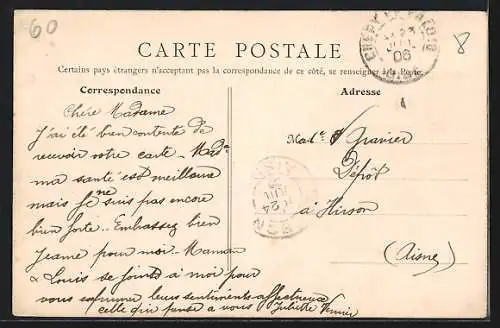 60
8
CARTE POSTALE
Certains pays étrangers n'acceptant pas la correspondance de ce côté, se renseigner à la Poste.
Correspondance
Chère Madame
J'ai été bien contente de
recevoir votre carte -
ma santé est meilleure
mais je ne suis pas encore
bien forte. Embassez bien
Jeanne pour moi. Maman
& Louis se joint à moi pour
vous exprimer leurs sentiments affectueux
celle qui pense a vous Juliette
Adresse
Dépôt
à Hirson
(Aisne)
06
24